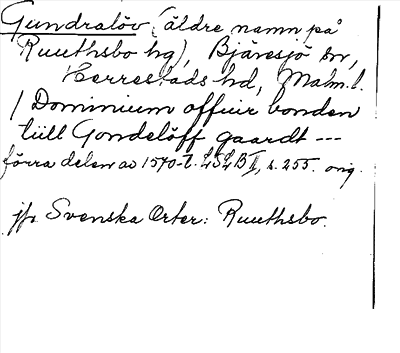 Gundralöv (äldre namn på
Ruuthsbo hg), Bjäresjö sn,
Herrestads hd, Malm. l.
/ Dominium offuir bonden
till Gondelöff gaardt ---
förra delen av 1570-t. LSLB II, s. 255. orig.
jfr Svenska Orter: Ruuthsbo.